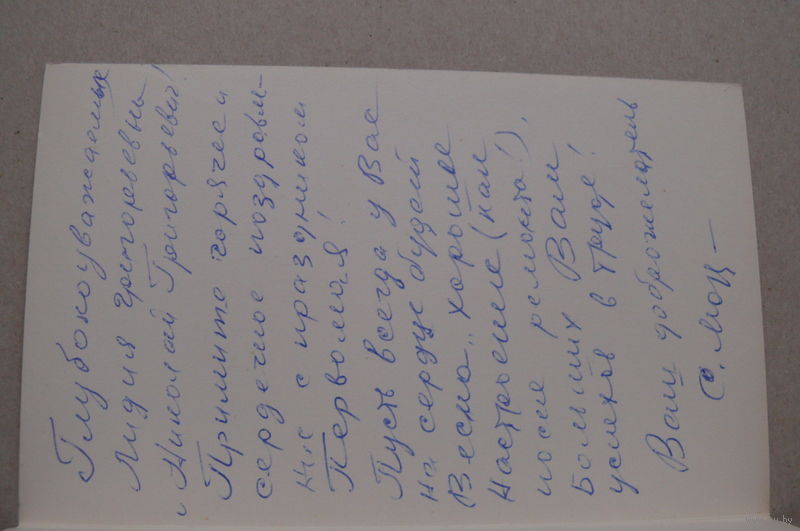 Глубокоуважаемые
Лидия Григорьевна
и Николай Григорьевич!
Примите горячее и
сердечное поздравле-
ние с праздником
Первомая!
Пусть всегда у Вас
на сердце будет
Весна, хорошее
настроение (как
после ремонта!),
больших Вам
успехов в труде!
Ваш доброжелатель